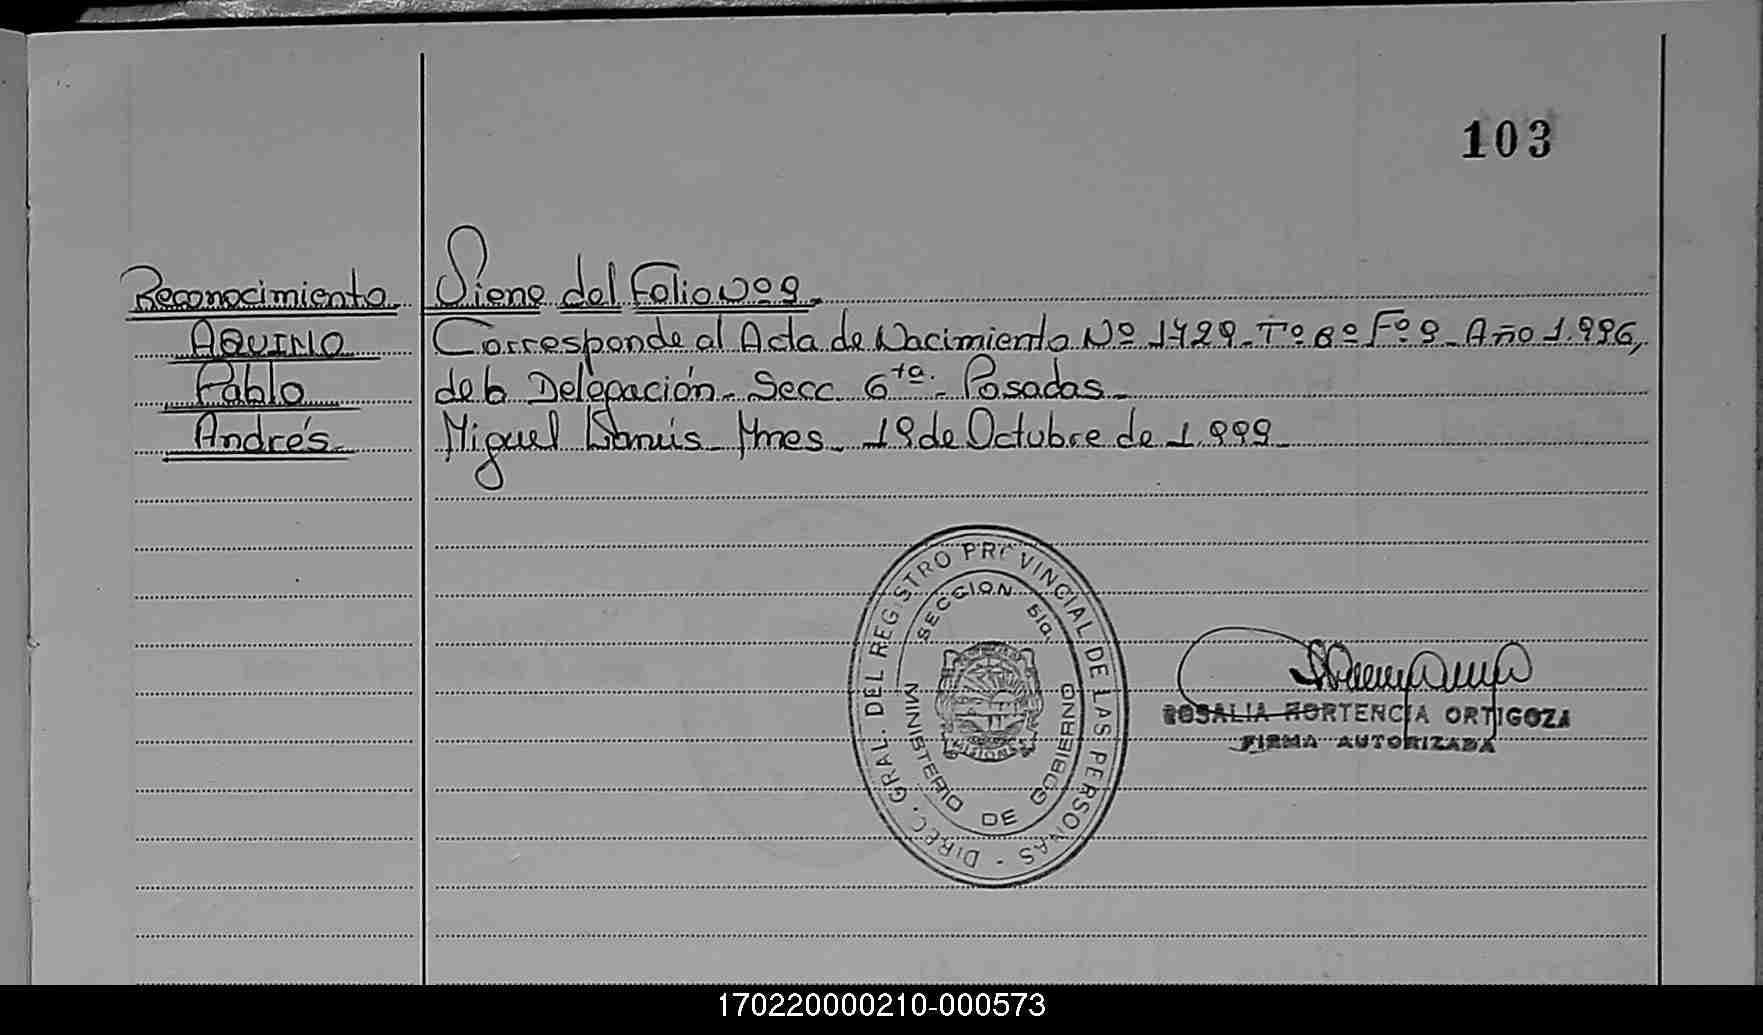 103
Reconocimiento
AQUINO
Pablo
Andrés.
Viene del Folio Nº 9.
Corresponde al Acta de Nacimiento Nº 1429. Tº 6º Fº 9. Año 1.996,
de la Delegación. Secc. 6ta. Posadas.
Miguel Lanús Mnes. 19 de Octubre de 1.999
DIREC. GRAL. DEL REGISTRO PROVINCIAL DE LAS PERSONAS
SECCION 6ta.
MINISTERIO DE GOBIERNO
MISIONES
ROSALIA HORTENCIA ORTIGOZA
FIRMA AUTORIZADA
170220000210-000573